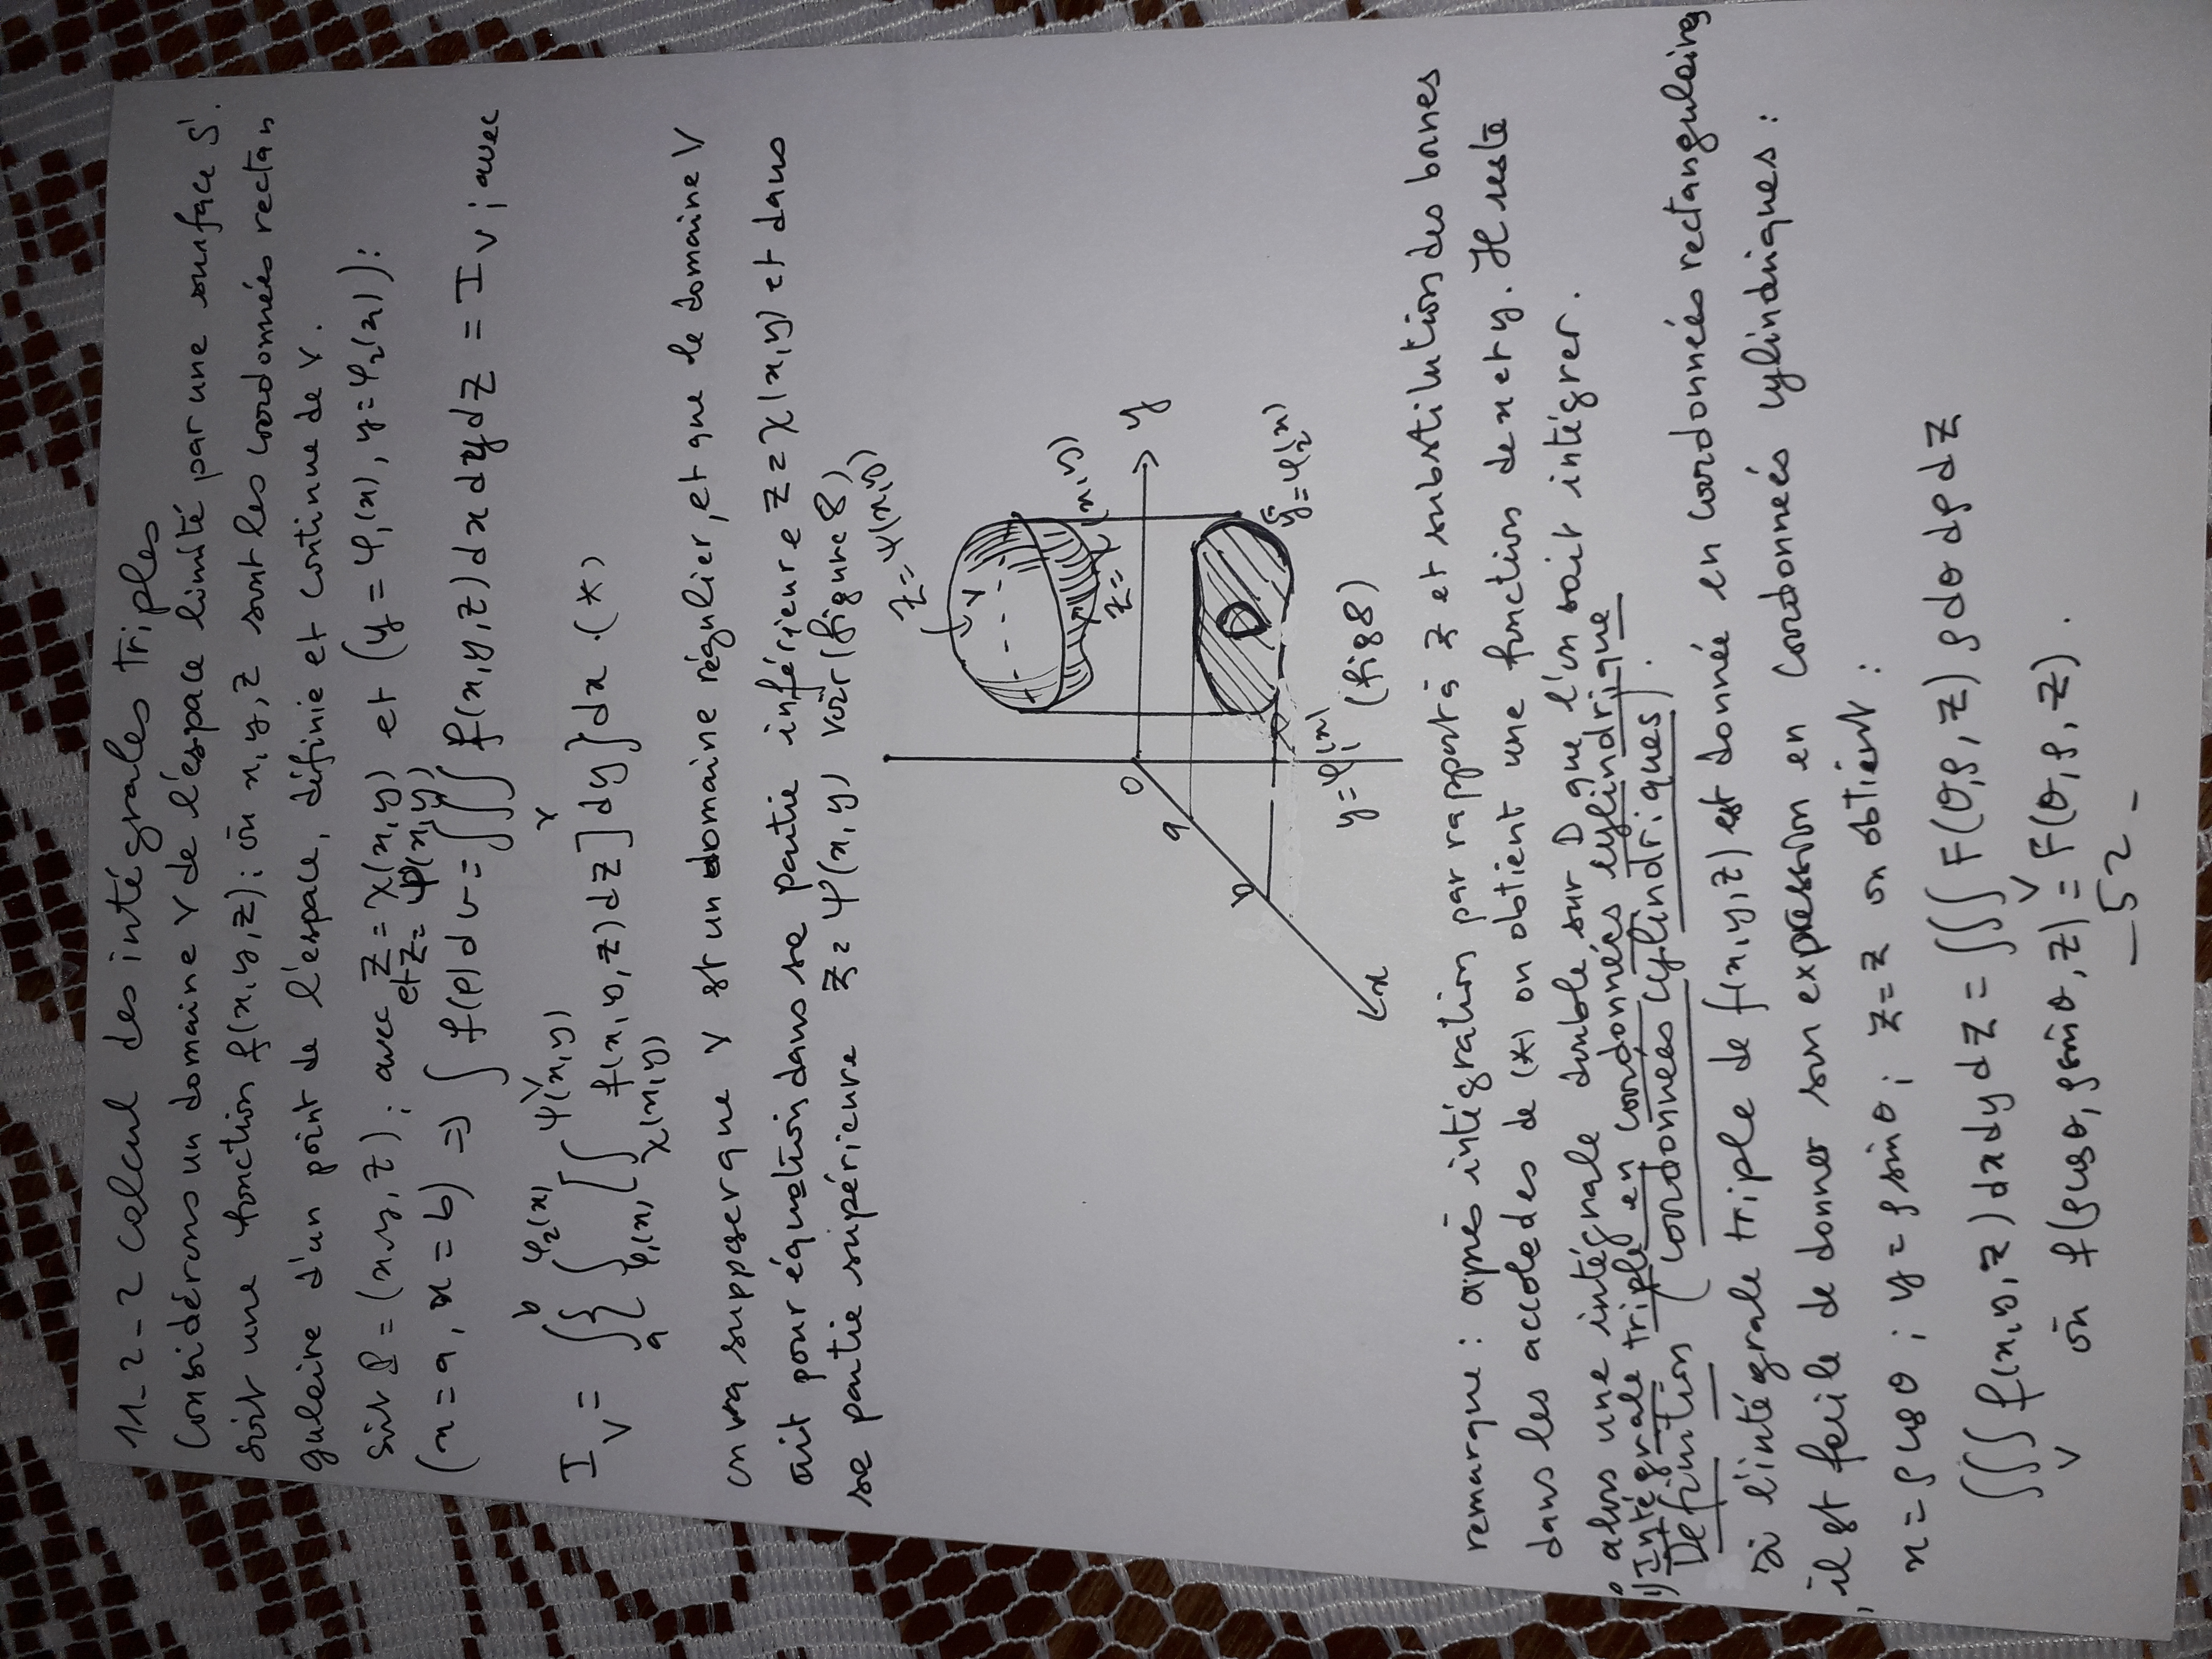 11-2-2 calcul des intégrales triples
Considérons un domaine V de l'espace limité par une surface S.
soit une fonction f(x,y,z); où x,y,z sont les coordonnées rectan
gulaire d'un point de l'espace, définie et continue de V.
soit P = (x,y,z); avec z = χ(x,y) et (y = φ₁(x), y = φ₂(x)):
et z = ψ(x,y)
(x = a, x = b) ⇒ ∫ f(P)dv = ∫∫∫ f(x,y,z)dxdydz = I_V ; avec
V V
I_V = ∫_a^b {∫_{φ₁(x)}^{φ₂(x)} [∫_{χ(x,y)}^{ψ(x,y)} f(x,y,z)dz]dy}dx. (*)
on va supposer que V st un domaine régulier, et que le domaine V
ait pour équation dans sa partie inférieure z = χ(x,y) et dans
sa partie supérieure z = ψ(x,y) voir (figure 8)
z = ψ(x,y)
V
z = χ(x,y)
O
y
a
b
D
x
y = φ₁(x)
y = φ₂(x)
(fig 8)
remarque : après intégration par rapport à z et substitution des bornes
dans les accolades de (*) on obtient une fonction de x et y. Il reste
alors une intégrale double sur D que l'on sait intégrer.
1°) Intégrale triple en coordonnées cylindrique
Définition (coordonnées cylindriques).
si l'intégrale triple de f(x,y,z) est donnée en coordonnées rectangulaires
, il st facile de donner son expression en coordonnées cylindriques :
x = ρcosθ ; y = ρsinθ ; z = z on obtient :
∫∫∫_V f(x,y,z)dxdydz = ∫∫∫_V F(θ,ρ,z)ρdθdρdz
où f(ρcosθ, ρsinθ, z) = F(θ,ρ,z).
-52-